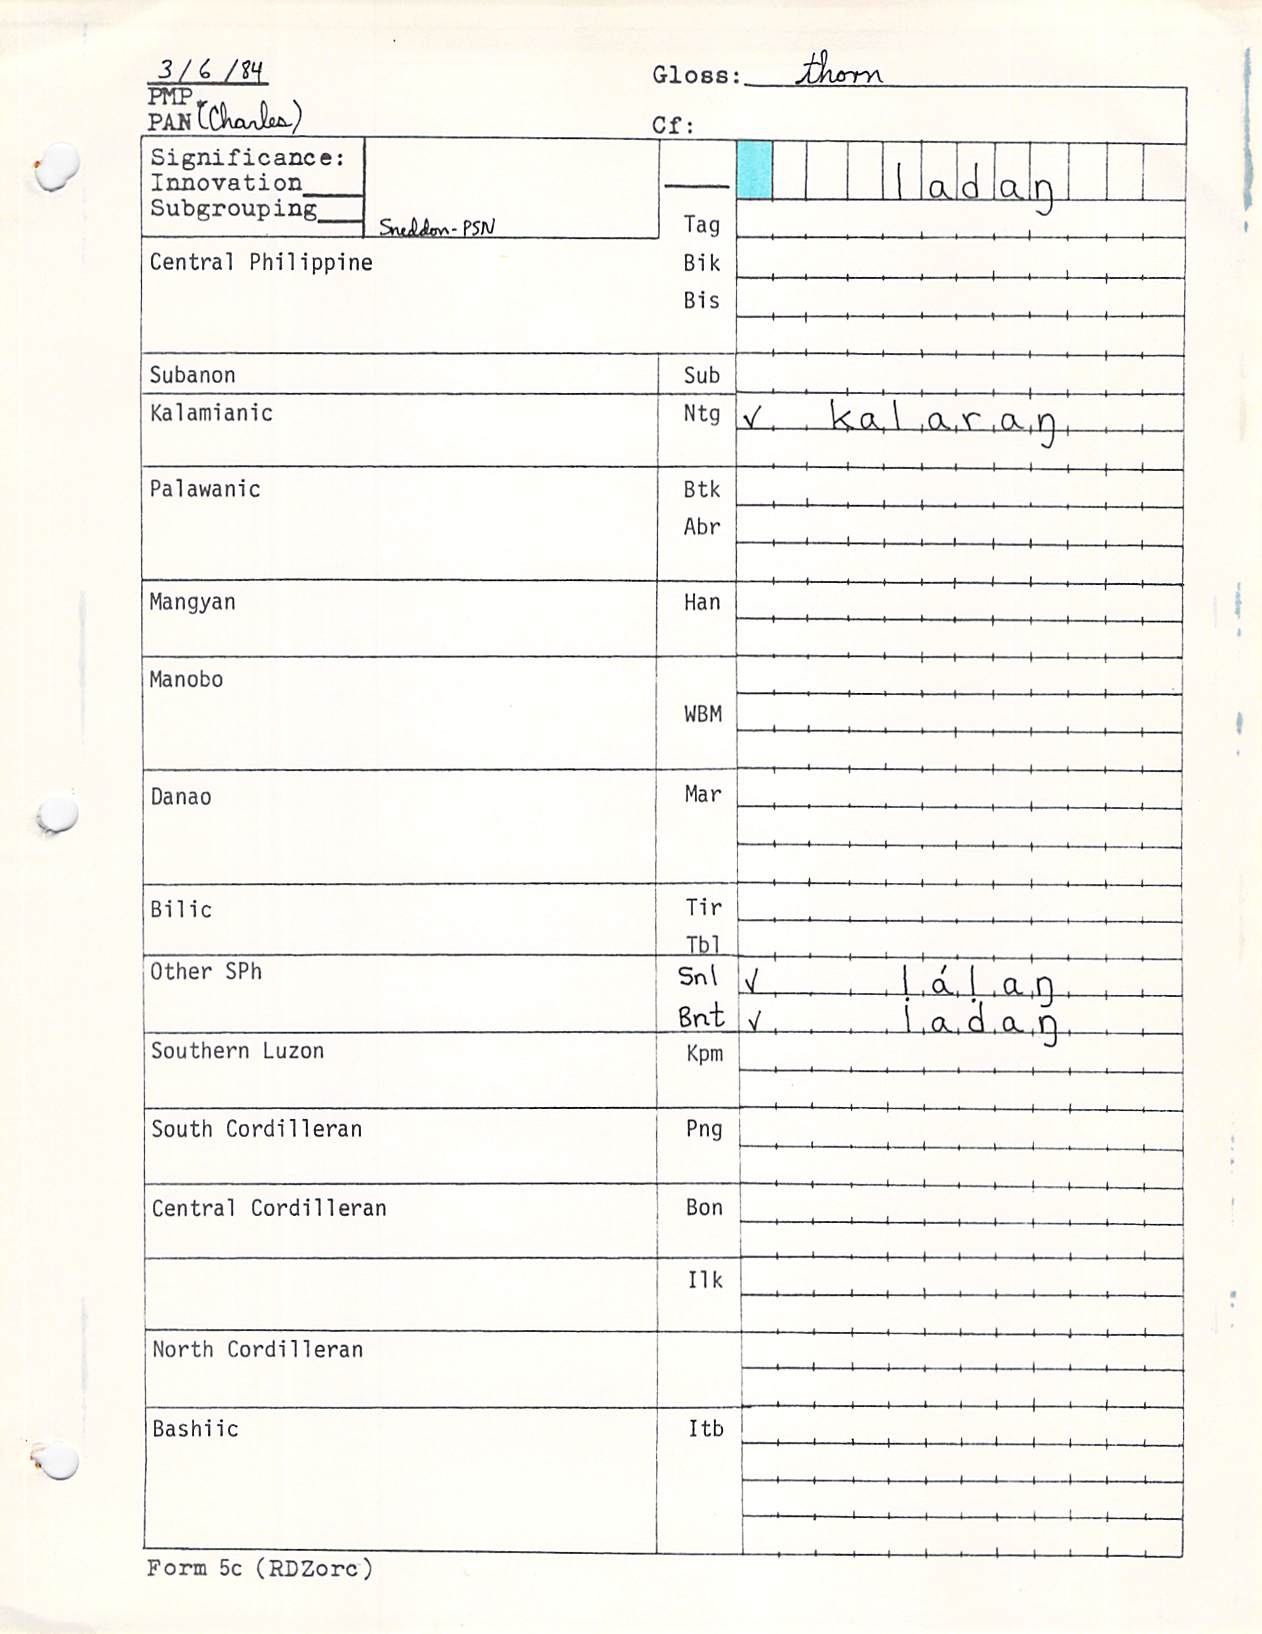 3/6/84
Gloss: thorn
PMP
PAN (Charles)
Cf:
Significance:
Innovation
Subgrouping
Sneddon-PSN
ladaŋ
Tag
Central Philippine Bik
Bis
Subanon Sub
Kalamianic Ntg ✓ kalaraŋ
Palawanic Btk
Abr
Mangyan Han
Manobo
WBM
Danao Mar
Bilic Tir
Tbl
Other SPh Snl ✓ ḷáḷaŋ
Bnt ✓ ladaŋ
Southern Luzon Kpm
South Cordilleran Png
Central Cordilleran Bon
Ilk
North Cordilleran
Bashiic Itb
Form 5c (RDZorc)